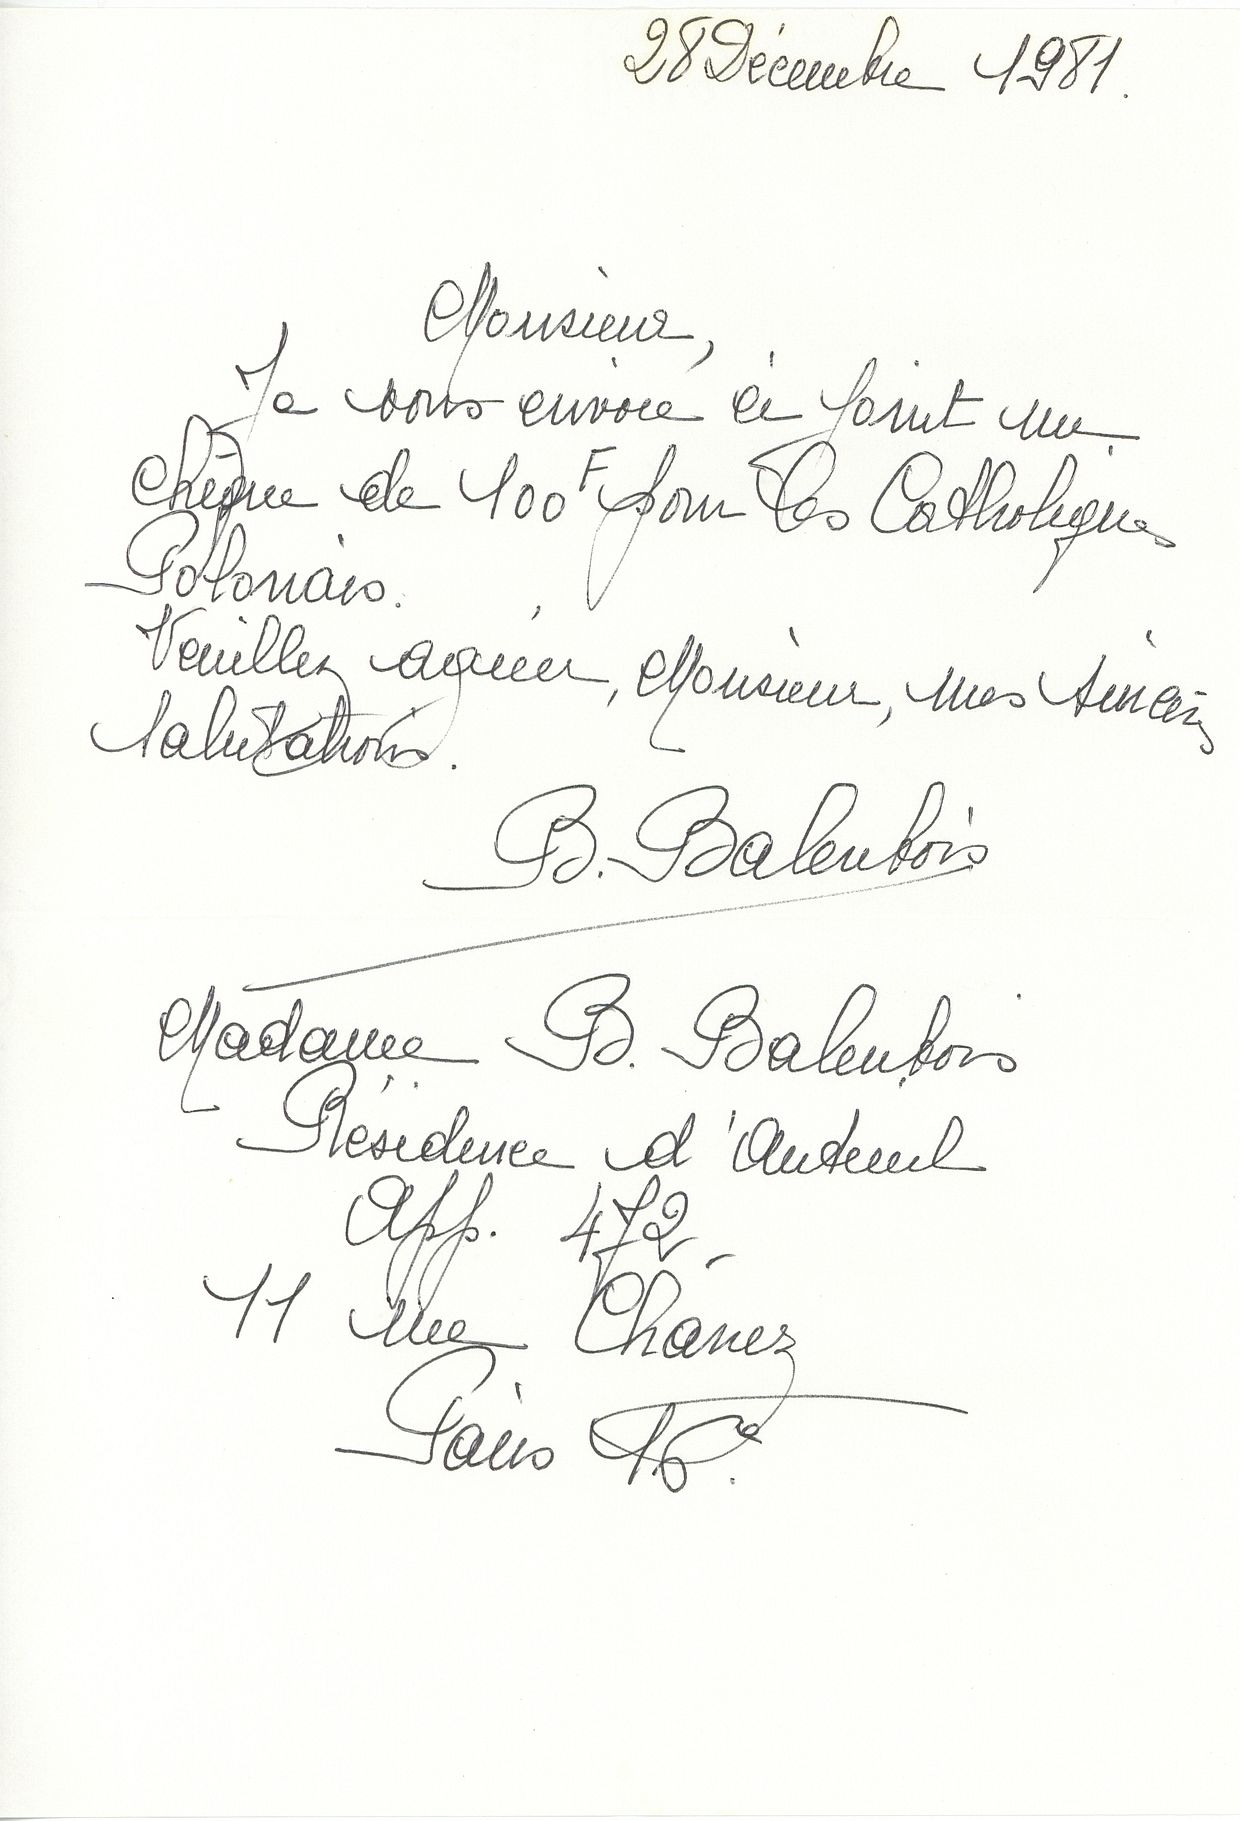 28 Décembre 1981.
Monsieur,
Je vous envoie ci joint un
chèque de 100F pour les Catholiques
Polonais.
Veuillez agréer, Monsieur, mes sincères
salutations.
B. Balenbois
Madame B. Balenbois
Résidence d'Auteuil
App. 472
11 rue Chanez
Paris 16e.